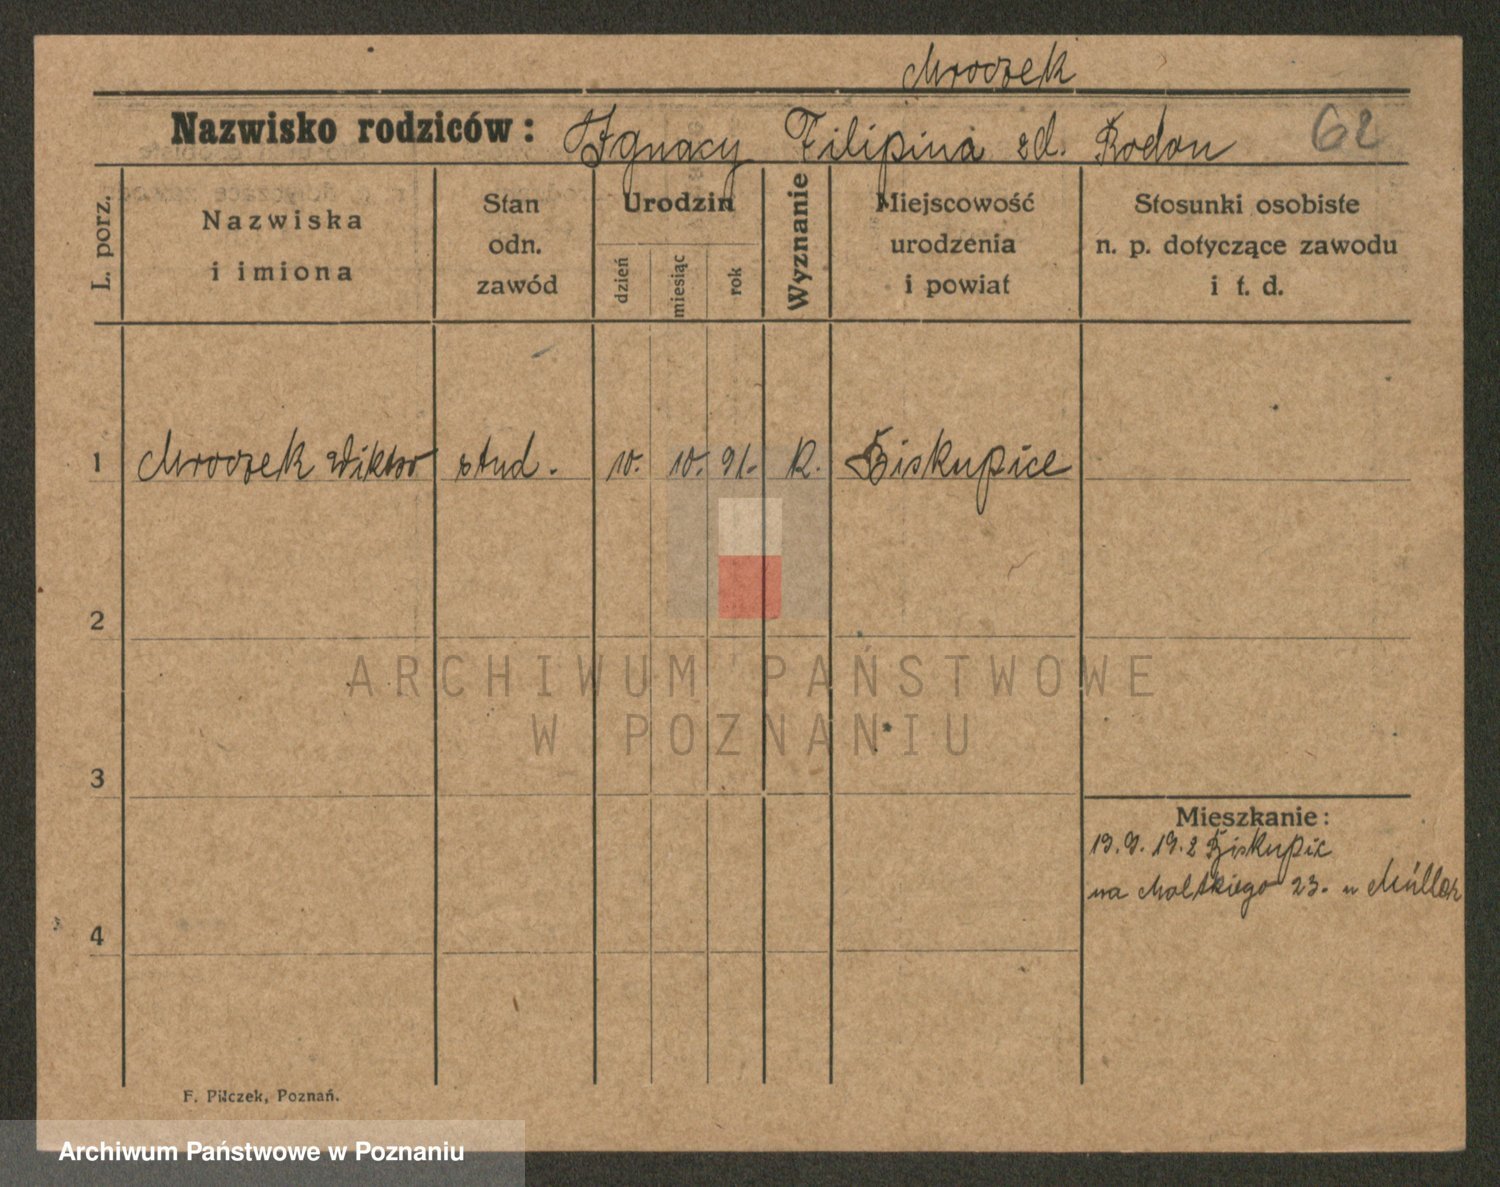 Mroczek
Nazwisko rodziców: Ignacy Filipina zd. Rodan 62
L. porz.
Nazwiska
i imiona
Stan
odn.
zawód
Urodzin
dzień
miesiąc
rok
Wyznanie
Miejscowość
urodzenia
i powiat
Stosunki osobiste
n. p. dotyczące zawodu
i t. d.
1 Mroczek Wiktor stud. 10. 10. 91. R. Biskupice
2
ARCHIWUM PAŃSTWOWE
W POZNANIU
3
Mieszkanie:
19.2 Biskupic
na Molskiego 23. u Müller
4
F. Pilczek, Poznań.
Archiwum Państwowe w Poznaniu